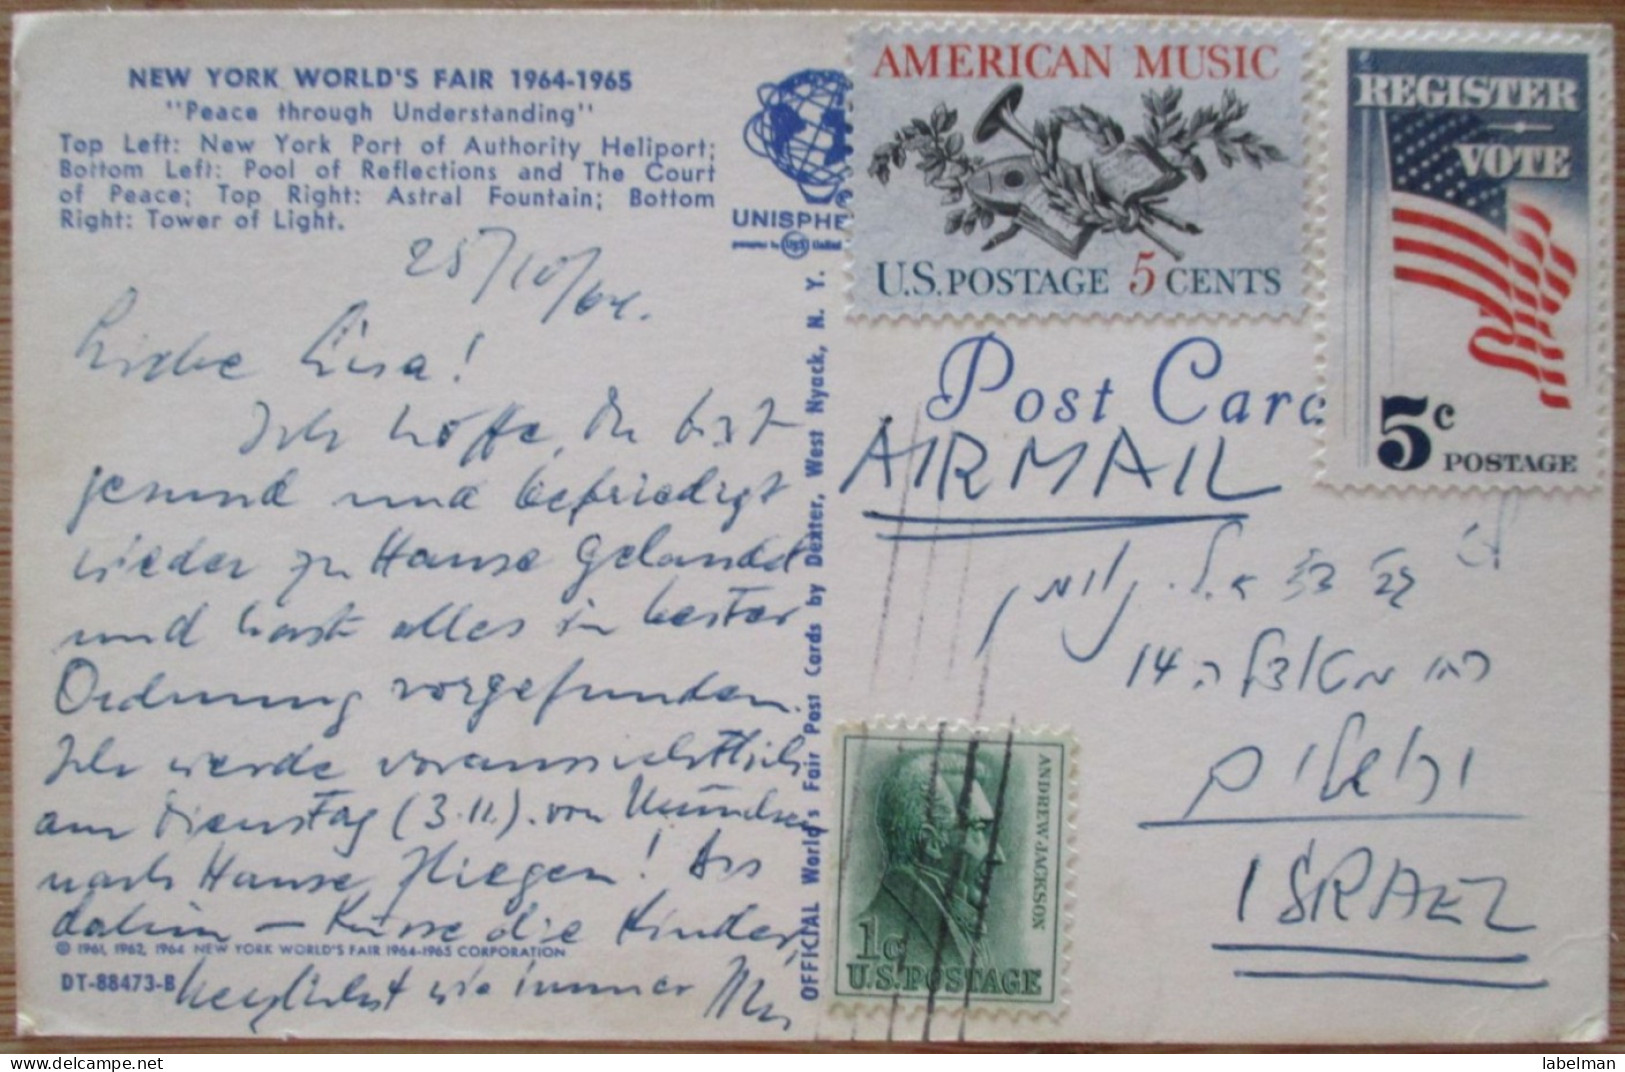 NEW YORK WORLD'S FAIR 1964-1965
"Peace through Understanding"
Top Left: New York Port of Authority Heliport;
Bottom Left: Pool of Reflections and The Court
of Peace; Top Right: Astral Fountain; Bottom
Right: Tower of Light.
UNISPHE
25/10/64.
Liebe Lisa!
Ich hoffe, Du bist
gesund und befriedigt
wieder zu Hause gelandet
und hast alles in bester
Ordnung vorgefunden.
Ich werde voraussichtlich
am Dienstag (3.11). von München
nach Hause fliegen! Bis
dahin – Küsse die Kinder,
© 1961, 1962, 1964 NEW YORK WORLD'S FAIR 1964-1965 CORPORATION
DT-88473-B
herzlichst wie immer
OFFICIAL World's Fair Post Cards by Dexter, West Nyack, N. Y.
AMERICAN MUSIC
U.S. POSTAGE 5 CENTS
REGISTER
VOTE
5c POSTAGE
Post Car
AIRMAIL
14
ירושלים
ISRAEL
ANDREW JACKSON
1c
U.S. POSTAGE
labelman delcampe.net